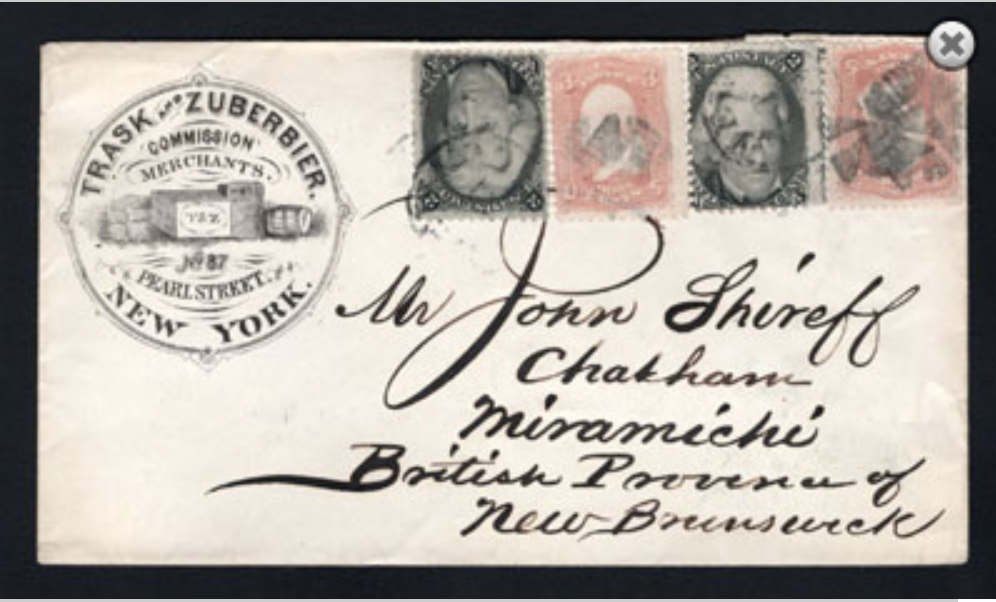 TRASK AND ZUBERBIER.
COMMISSION
MERCHANTS.
T&Z
No 87
PEARL STREET.
NEW YORK.
Mr John Shireff
Chatham
Miramichi
British Province of
New-Brunswick